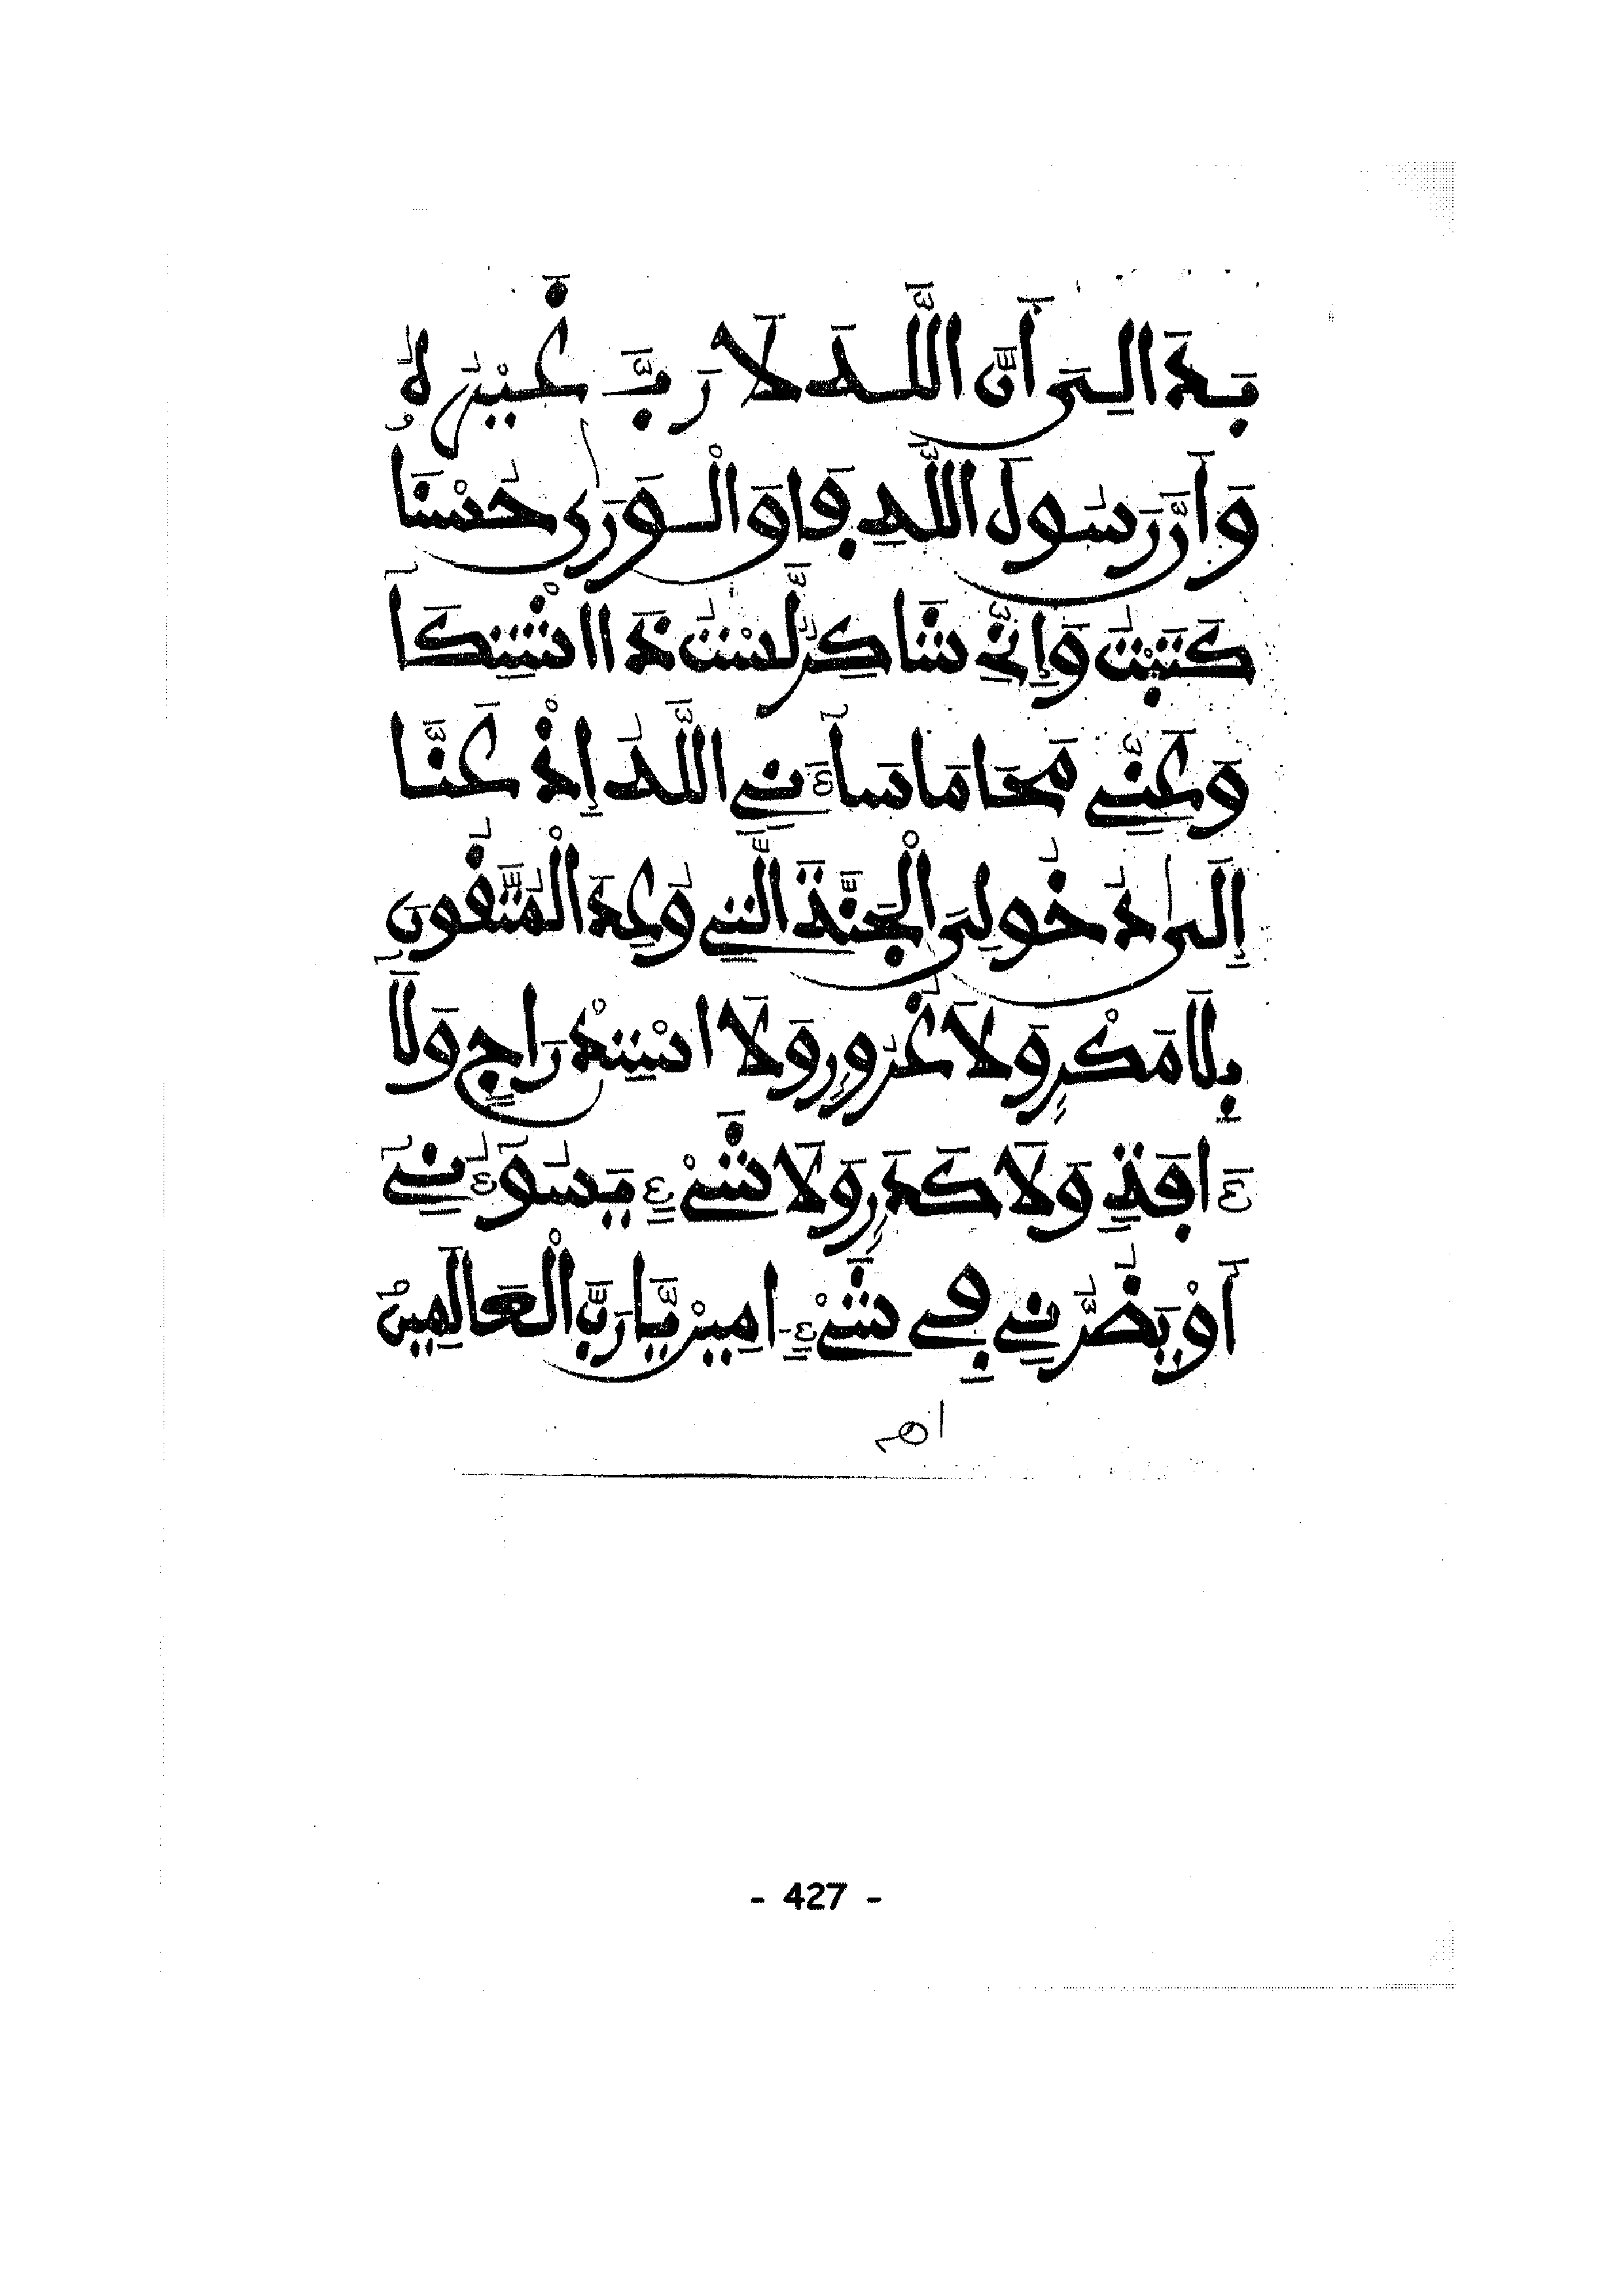 بَدَا لِيَ أَنَّ اللَّهَ لَا رَبَّ غَيْرُهُ
وَأَنَّ رَسُولَ اللَّهِ فَاقَ الْوَرَى حُسْنَا
كَتَبْتُ وَإِنِّي شَاكِرٌ لَسْتُ ذَا اشْتِكَا
وَعَنِّي مَحَا مَا سَاءَنِي اللَّهُ إِذْ عَنَّا
إِلَى دُخُولِيَ الْجَنَّةَ الَّتِي وُعِدَ الْمُتَّقُونَ
بِلَا مَكْرٍ وَلَا غُرُورٍ وَلَا اسْتِدْرَاجٍ وَلَا
ءَافَةٍ وَلَا كَدَرٍ وَلَا شَيْءٍ يَسُوءُنِي
أَوْ يَضُرُّنِي فِي شَيْءٍ ءَامِينَ يَا رَبَّ الْعَالَمِينَ
اهـ
- 427 -